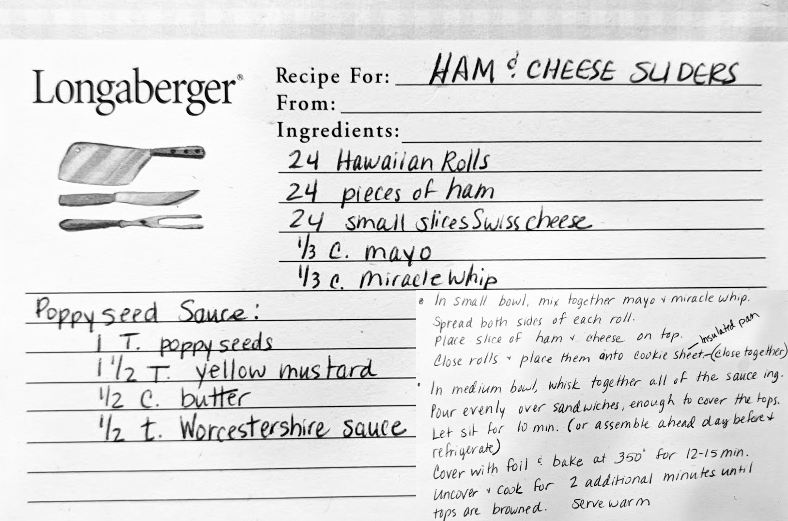 Longaberger®
Recipe For: HAM & CHEESE SLIDERS
From:
Ingredients:
24 Hawaiian Rolls
24 pieces of ham
24 small slices Swiss cheese
1/3 C. mayo
1/3 C. miracle whip
Poppyseed Sauce:
1 T. poppy seeds
1 1/2 T. yellow mustard
1/2 C. butter
1/2 t. Worcestershire sauce
• In small bowl, mix together mayo + miracle whip.
Spread both sides of each roll.
Place slice of ham + cheese on top.
insulated pan
Close rolls + place them onto cookie sheet – (close together)
• In medium bowl, whisk together all of the sauce ing.
Pour evenly over sandwiches, enough to cover the tops.
Let sit for 10 min. (or assemble ahead day before +
refrigerate)
Cover with foil & bake at 350° for 12-15 min.
Uncover + cook for 2 additional minutes until
tops are browned. Serve warm